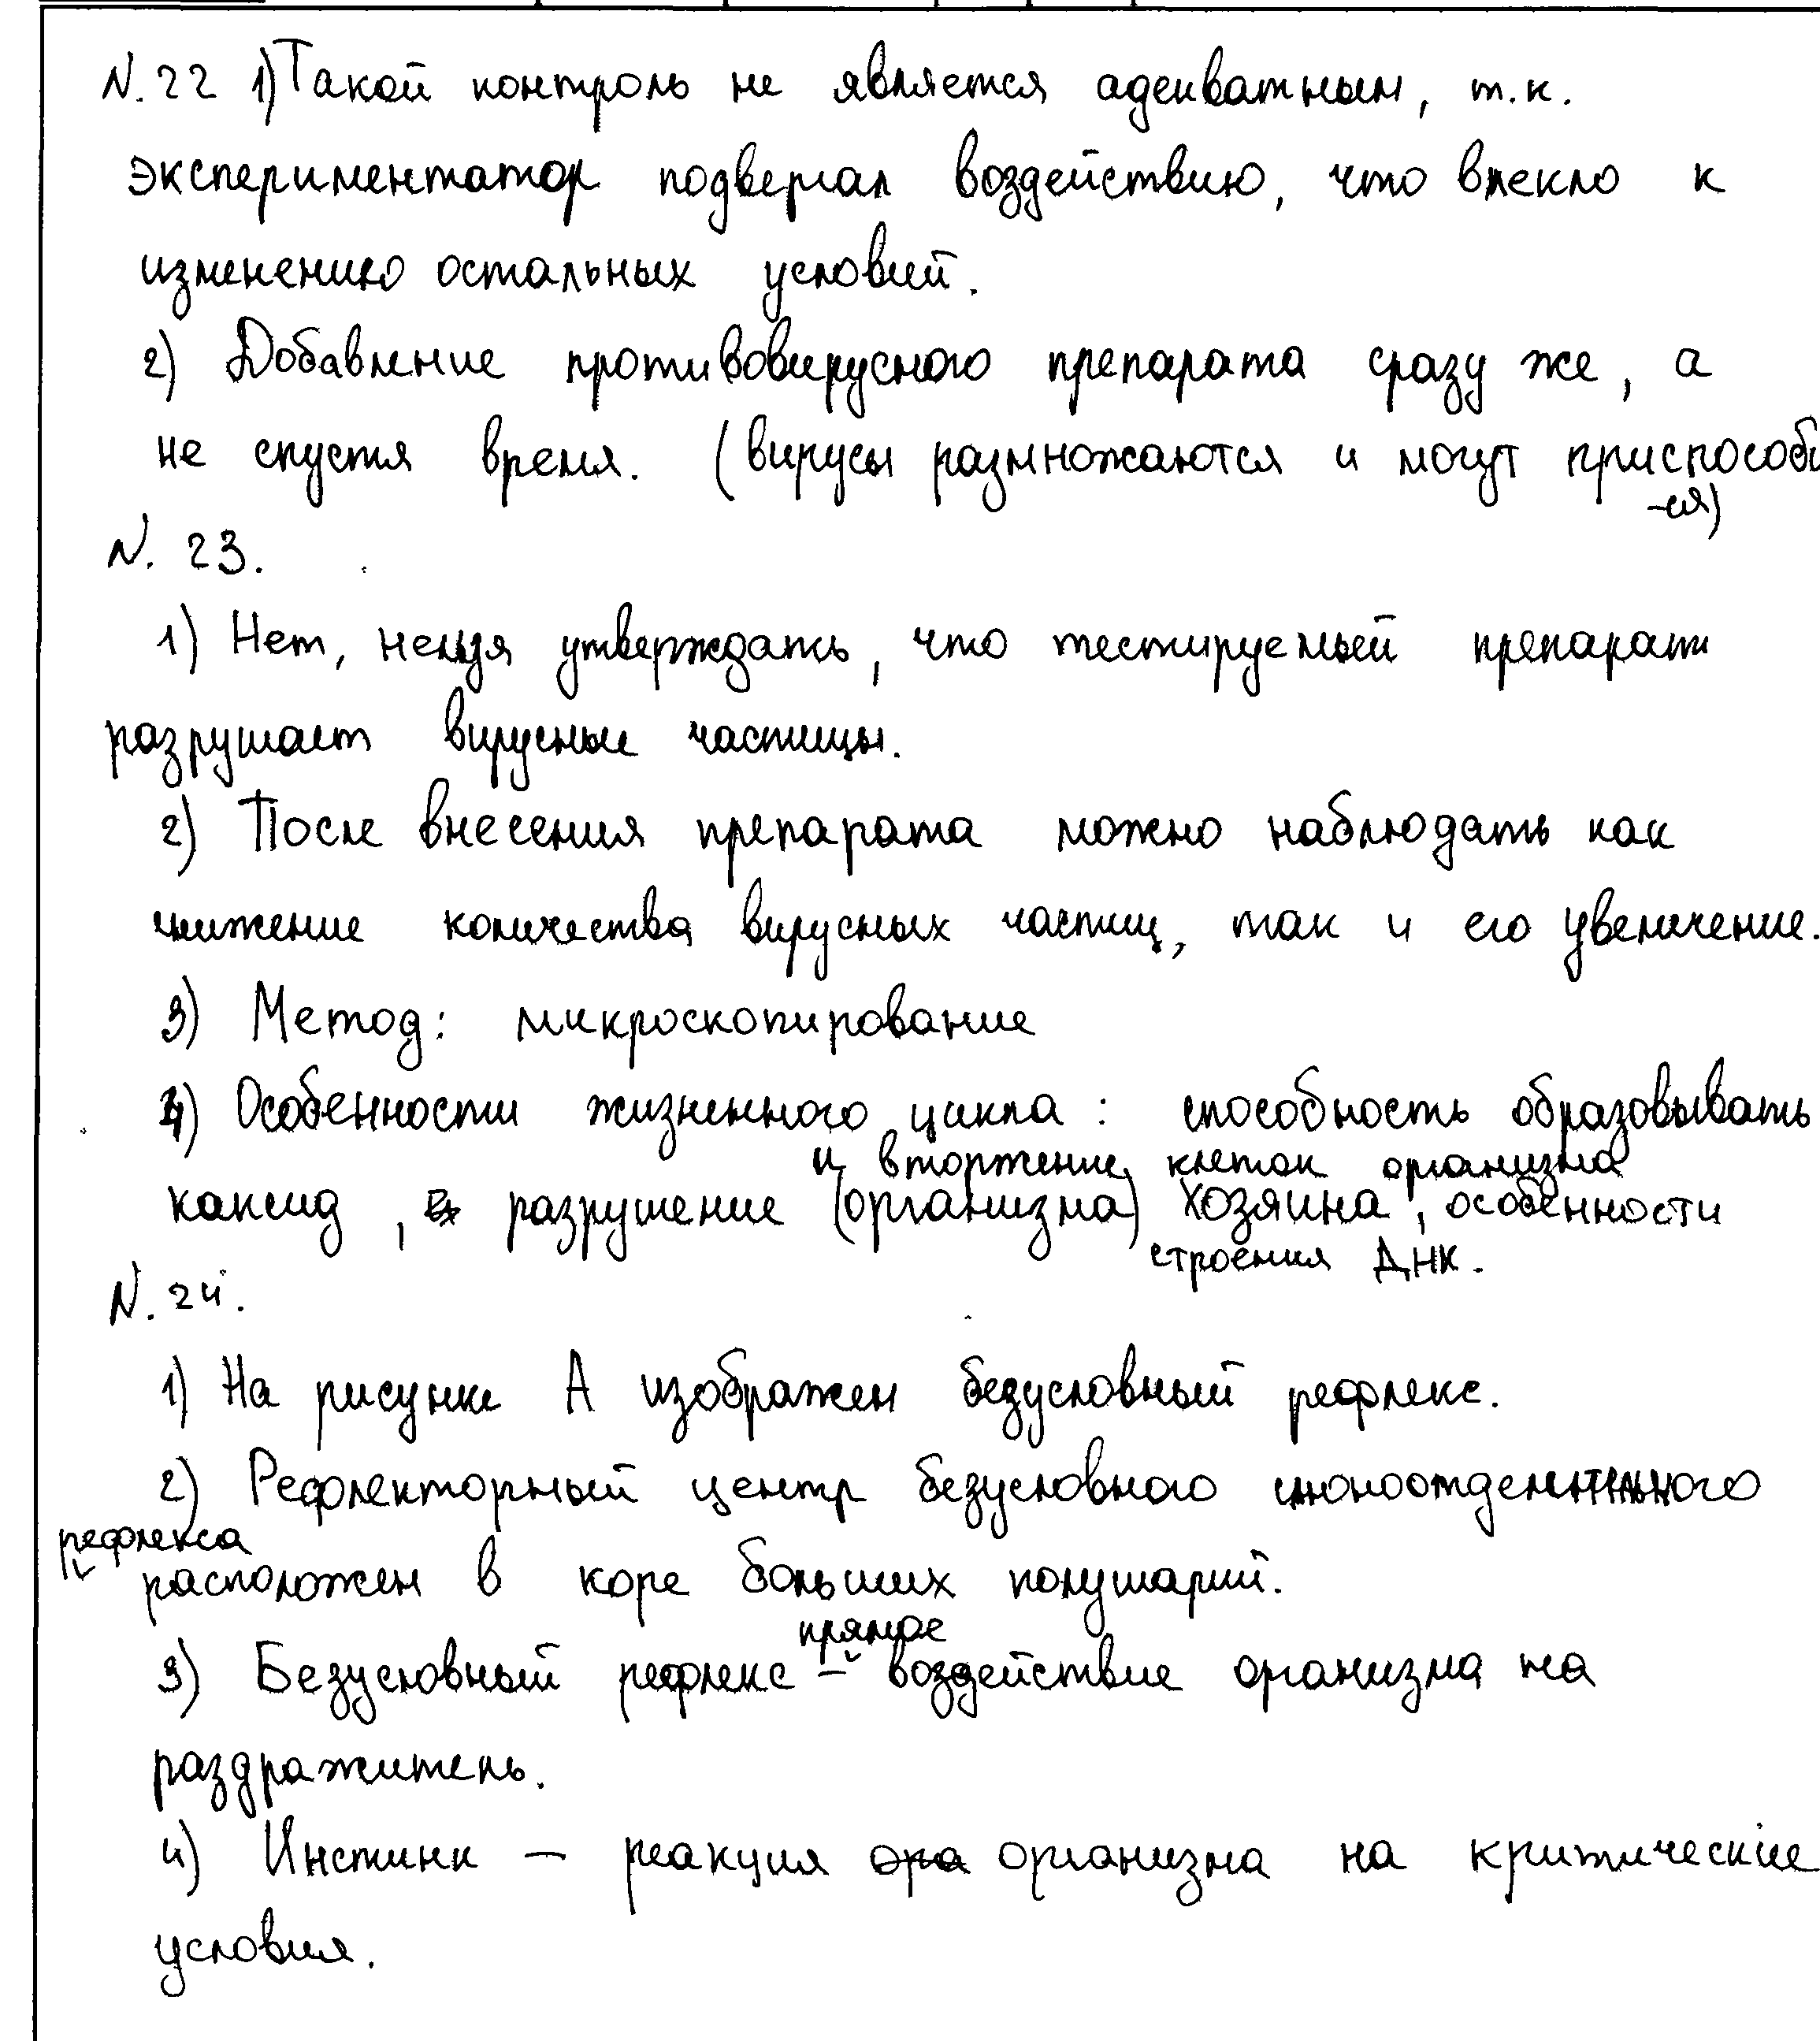 N. 22 1) Такой контроль не является адекватным, т.к.
экспериментатор подвергал воздействию, что влекло к
изменению остальных условий.
2) Добавление противовирусного препарата сразу же, а
не спустя время. (вирусы размножаются и могут приспособи
-ся)
N. 23.
1) Нет, нельзя утверждать, что тестируемый препарат
разрушает вирусные частицы.
2) После внесения препарата можно наблюдать как
снижение количества вирусных частиц, так и его увеличение.
3) Метод: микроскопирование
4) Особенности жизненного цикла: способность образовывать
и вторжение клеток организма
капсид, разрушение (организма) хозяина, особенности
строения ДНК.
N. 24.
1) На рисунке А изображен безусловный рефлекс.
2) Рефлекторный центр безусловного слюноотделительного
рефлекса
расположен в коре больших полушарий.
прямое
3) Безусловный рефлекс – воздействие организма на
раздражитель.
4) Инстинк – реакция организма на критические
условия.